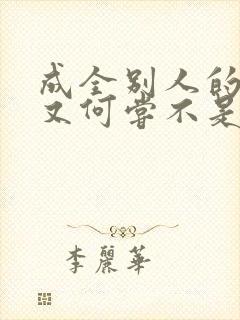 成全别人的
又何尝不是
李麗華